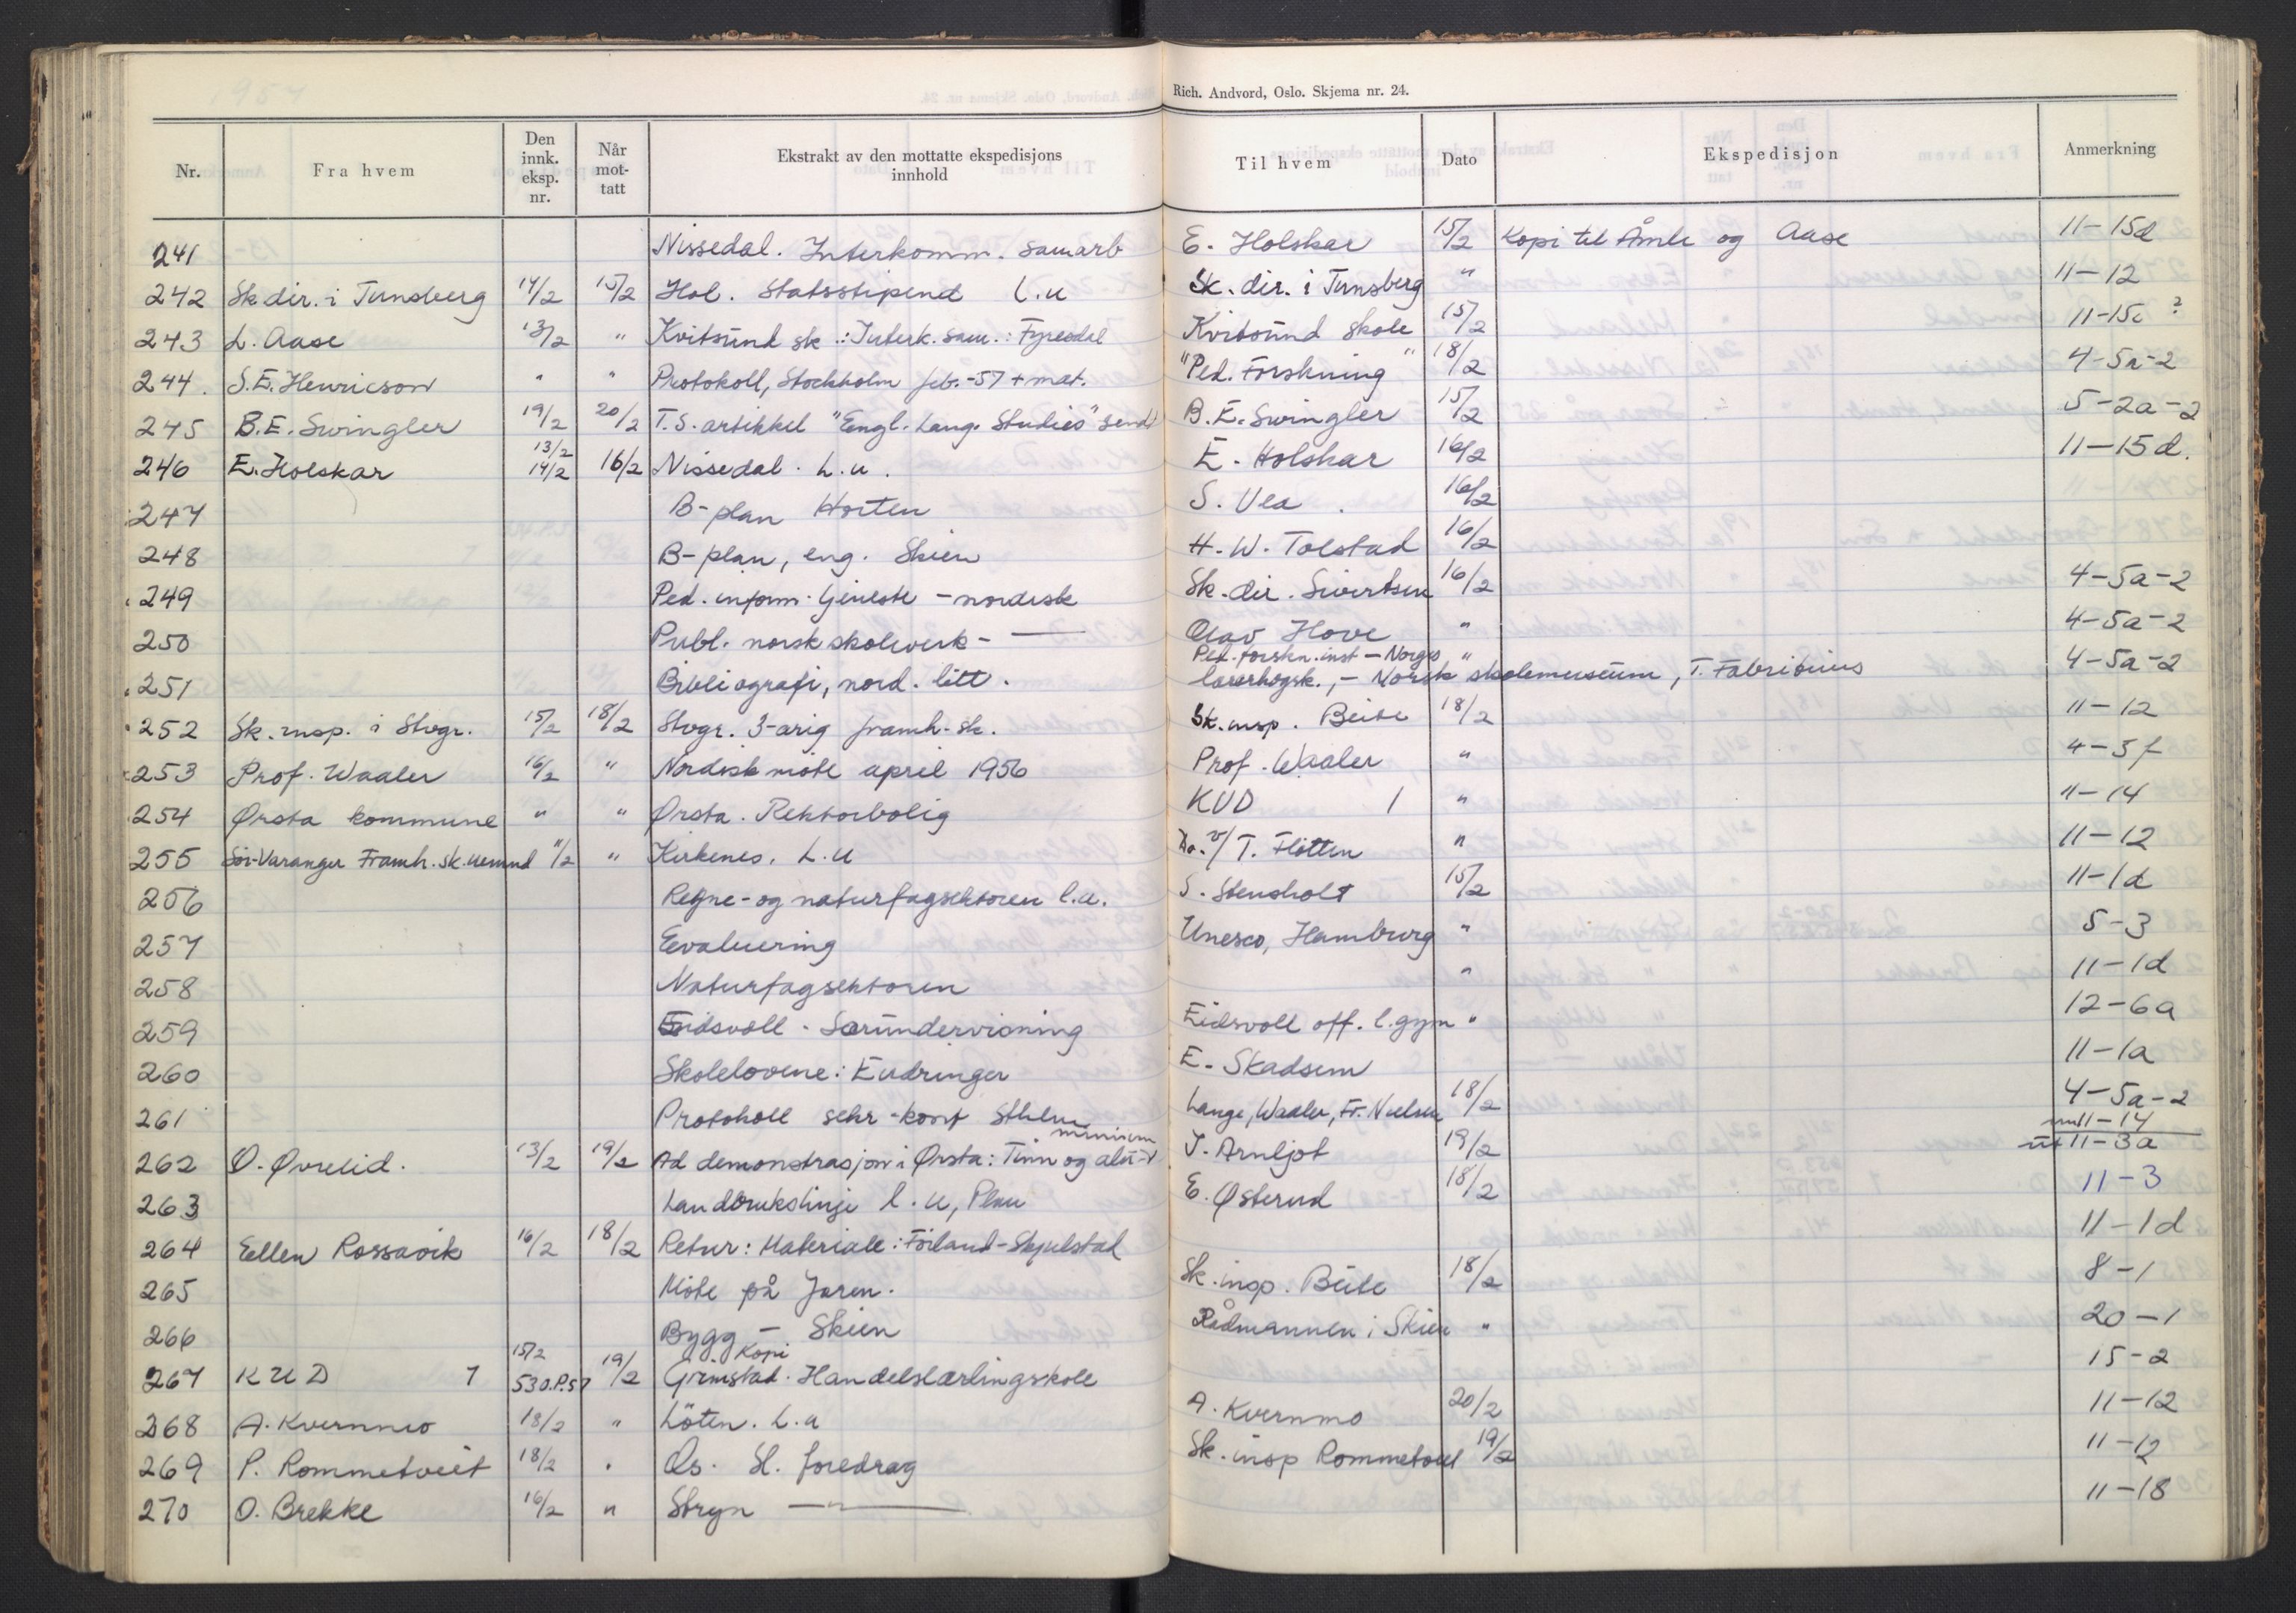 Rich. Andvord, Oslo. Skjema nr. 24.
Nr. | Fra hvem | Den innk. eksp. nr. | Når mot-tatt | Ekstrakt av den mottatte ekspedisjons innhold | Til hvem | Dato | Ekspedisjon | Anmerkning
241 Nissedal. Interkomm. samarb E. Holskar 15/2 Kopi til Åmli og Aase 11-15d
242 Sk dir. i Tunsberg 14/2 15/2 Hol. Statsstipend L.u Sk. dir. i Tunsberg " 11-12
243 L. Aase 13/2 " Kvitsund sk.: Interk. sam.: Fyresdal Kvitsund skole 15/2 11-15c ?
244. S.E. Henricson " " Protokoll, Stockholm feb.-57 + mat. "Ped. Forskning" 18/2 4-5a-2
245 B.E. Swingler 19/2 20/2 T.S. artikkel "Engl. Lang. Studies" sendt B.E. Swingler 15/2 5-2a-2
246 E. Holskar 13/2 14/2 16/2 Nissedal. L.u. E. Holskar 16/2 11-15d.
247 B-plan Horten S. Vea. 16/2
248 B-plan, eng. Skien H.W. Tolstad 16/2
249 Ped. inform. tjeneste - nordisk Sk. dir. Sivertsen 16/2 4-5a-2
250 Publ. norsk skoleverk - — Olav Hove " 4-5a-2
251 Bibliografi, nord. litt. Ped. forskn. inst - Norges " lærerhøgsk., - Norsk skolemuseum, T. Fabritius 4-5a-2
252 Sk. insp. i Stvgr. 15/2 18/2 Stvgr. 3-årig framh. sk. Sk. insp. Beite 18/2 11-12
253 Prof. Waaler 16/2 " Nordisk møte april 1956 Prof. Waaler " 4-3f
254 Ørsta kommune " " Ørsta. Rektorbolig KUD 1 " 11-14
255 Sør-Varanger Framh. sk. nemnd 11/2 " Kirkenes. L.u Do. v/ T. Fløtten " 11-12
256 Regne- og naturfagsektoren l.u. S. Stensholt 15/2 11-1d
257 Eevaluering Unesco, Hamburg " 5-3
258 Naturfagsektoren " 11-1d
259 Eidsvoll - Særundervisning Eidsvoll off. l. gym " 12-6a
260 Skolelovene: Endringer E. Skadsem 11-1a
261 Protokoll sekr-konf Sthlm Lange, Waaler, Fr. Nielsen 18/2 4-5a-2
262 O. Øvrelid. 13/2 19/2 Ad demonstrasjon i Ørsta: Tinn og alu-minium J. Arnljot 19/2 11-14 11-3a
263 Landbrukslinje l.u, Plan E. Østerud 18/2 11-3
264 Ellen Rossavik 16/2 18/2 Retur: Materiale: Førland-Skjulstad 11-1d
265 Møte på Jæren. Sk. insp. Beite 18/2 8-1
266 Bygg - Skien Rådmannen i Skien " 20-1
267 KUD 7 15/2 530.P.57 19/2 Kopi Grimstad. Handelslærlingskole 15-2
268 A. Kvernmo 18/2 " Løten. L.u A. Kvernmo 20/2 11-12
269 P. Rommetveit 18/2 " Os. Sl. foredrag Sk. insp Rommetveit 19/2 11-12
270 O. Brekke 16/2 " Stryn —"— 11-18